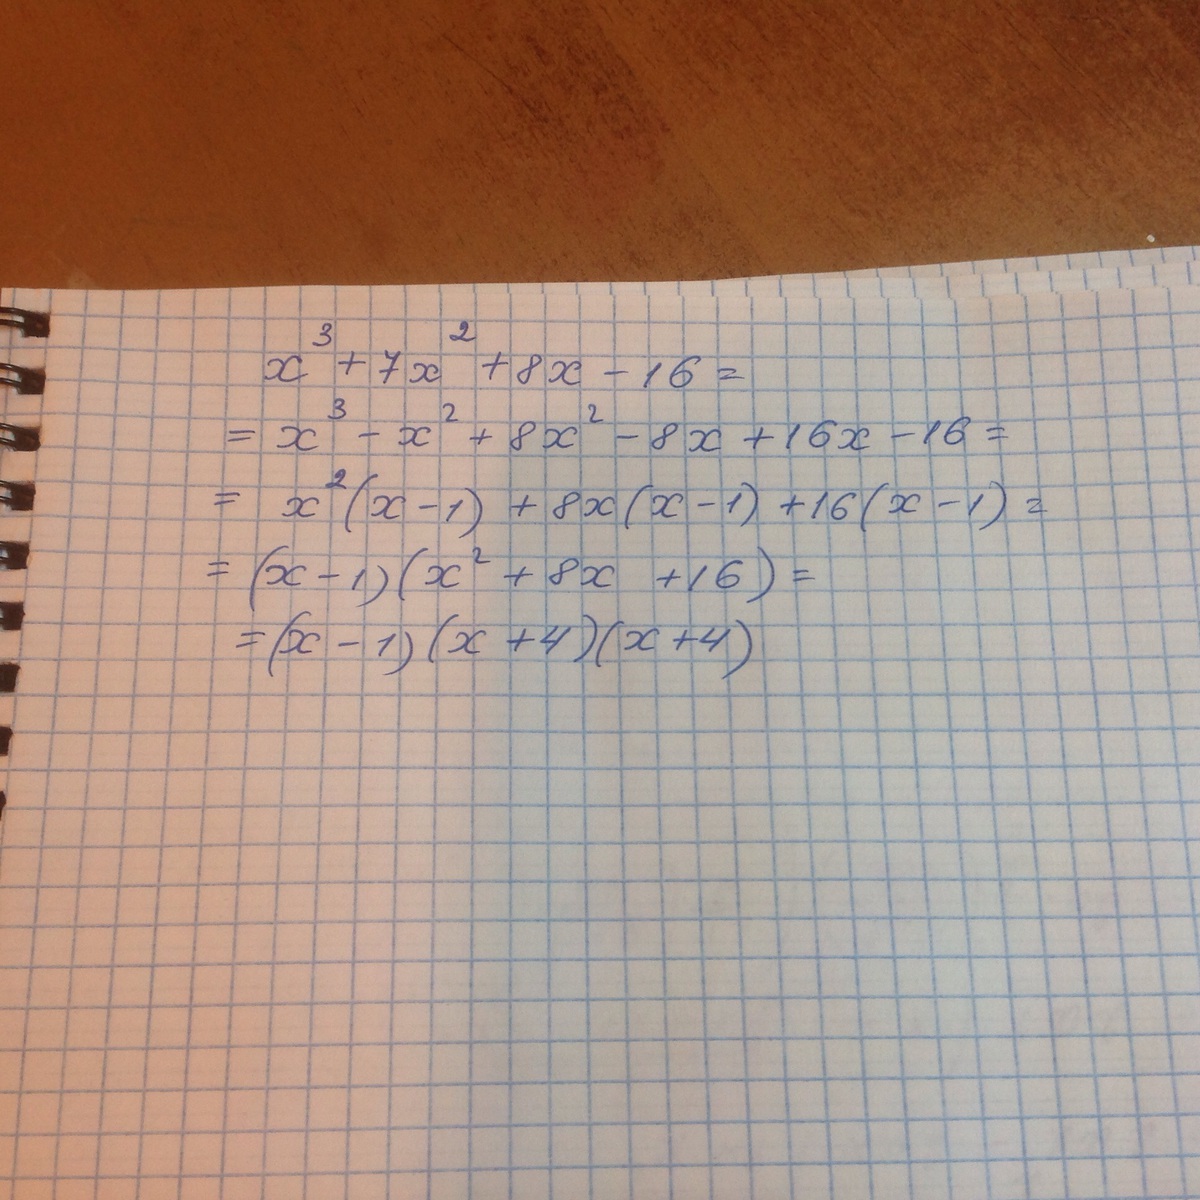 x³ + 7x² + 8x - 16 =
= x³ - x² + 8x² - 8x + 16x - 16 =
= x²(x - 1) + 8x(x - 1) + 16(x - 1) =
= (x - 1)(x² + 8x + 16) =
= (x - 1)(x + 4)(x + 4)